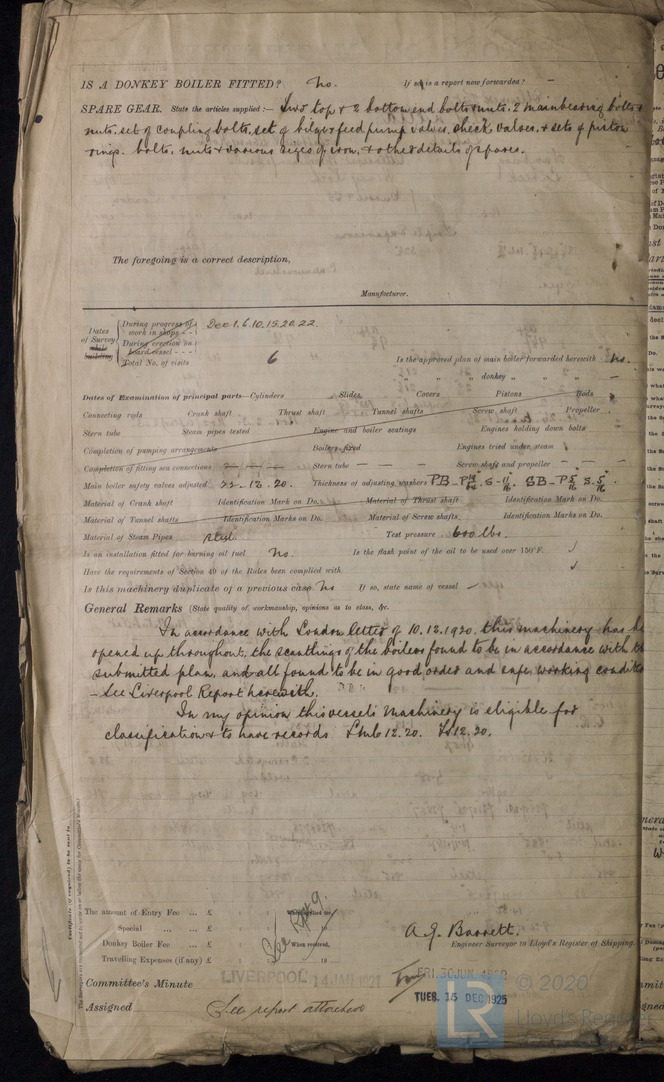 IS A DONKEY BOILER FITTED? No. If so, is a report now forwarded? –
SPARE GEAR. State the articles supplied:— Two top & 2 bottom end bolts & nuts. 2 main bearing bolts &
nuts, set of coupling bolts, set of bilge & feed pump valves, check valves, & sets of piston
rings. bolts, nuts & various sizes of iron, & other details of spares.
The foregoing is a correct description,
Manufacturer.
Dates of Survey while building
During progress of work in shops - -
Dec 1. 6. 10. 15. 20. 22.
During erection on board vessel - - -
Total No. of visits 6
Is the approved plan of main boiler forwarded herewith No.
" " donkey " " " –
Dates of Examination of principal parts—Cylinders Slides Covers Pistons Rods
Connecting rods Crank shaft Thrust shaft Tunnel shafts Screw shaft Propeller
Stern tube Steam pipes tested Engine and boiler seatings Engines holding down bolts
Completion of pumping arrangements Boilers fixed Engines tried under steam
Completion of fitting sea connections Stern tube Screw shaft and propeller
Main boiler safety valves adjusted 22-12.20. Thickness of adjusting washers PB - P S 11/16 SB - P 5/16 S 5/16
Material of Crank shaft Identification Mark on Do. Material of Thrust shaft Identification Mark on Do.
Material of Tunnel shafts Identification Marks on Do. Material of Screw shafts Identification Marks on Do.
Material of Steam Pipes Steel. Test pressure 600 lbs.
Is an installation fitted for burning oil fuel No. Is the flash point of the oil to be used over 150°F.
Have the requirements of Section 49 of the Rules been complied with
Is this machinery duplicate of a previous case No If so, state name of vessel –
General Remarks (State quality of workmanship, opinions as to class, &c.
In accordance with London letter of 10.12.1920. this machinery has be
opened up throughout, the scantlings of the boilers found to be in accordance with th
submitted plan, and all found to be in good order and safe working conditio
– See Liverpool Report herewith.
In my opinion this vessel's machinery is eligible for
classification & to have records LMC 12.20. TS 12.20.
The amount of Entry Fee ... £ : : When applied for,
Special ... ... £ : : 19
Donkey Boiler Fee ... £ : : When received,
Travelling Expenses (if any) £ : : 19
See Rpt 9.
A. G. Barrett.
Engineer Surveyor to Lloyd's Register of Shipping.
Committee's Minute LIVERPOOL 14 JAN 1921
FRI. 30 JUN.
TUES. 15 DEC 1925
Assigned See report attached
© 2020
LR
Lloyd's Register